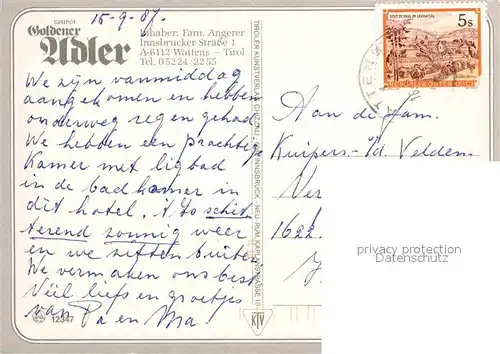 15-9-87.
Gasthof
Goldener
Adler
Inhaber: Fam. Angerer
Innsbrucker Straße 1
A-6112 Wattens – Tirol
Tel. 05224/2255
We zijn vanmiddag
aangekomen en hebben
onderweg regen gehad.
We hebben een prachtige
Kamer met ligbad
in de badkamer in
dit hotel. schit-
terend zonnig weer
en we zitten buiten
We vermaken ons best
Veel liefs en groetjes
van Pa en Ma!
12347
TIROLER KUNSTVERLAG CHIZZALI, INNSBRUCK - NEU-RUM, KAPLANSTRASSE 10
KTV
5s
STIFT ST. PAUL IM LAVANTTAL
REPUBLIK ÖSTERREICH
WATTENS
Aan de fam.
Kuipers-v/d Velden
1622
privacy protection
Datenschutz